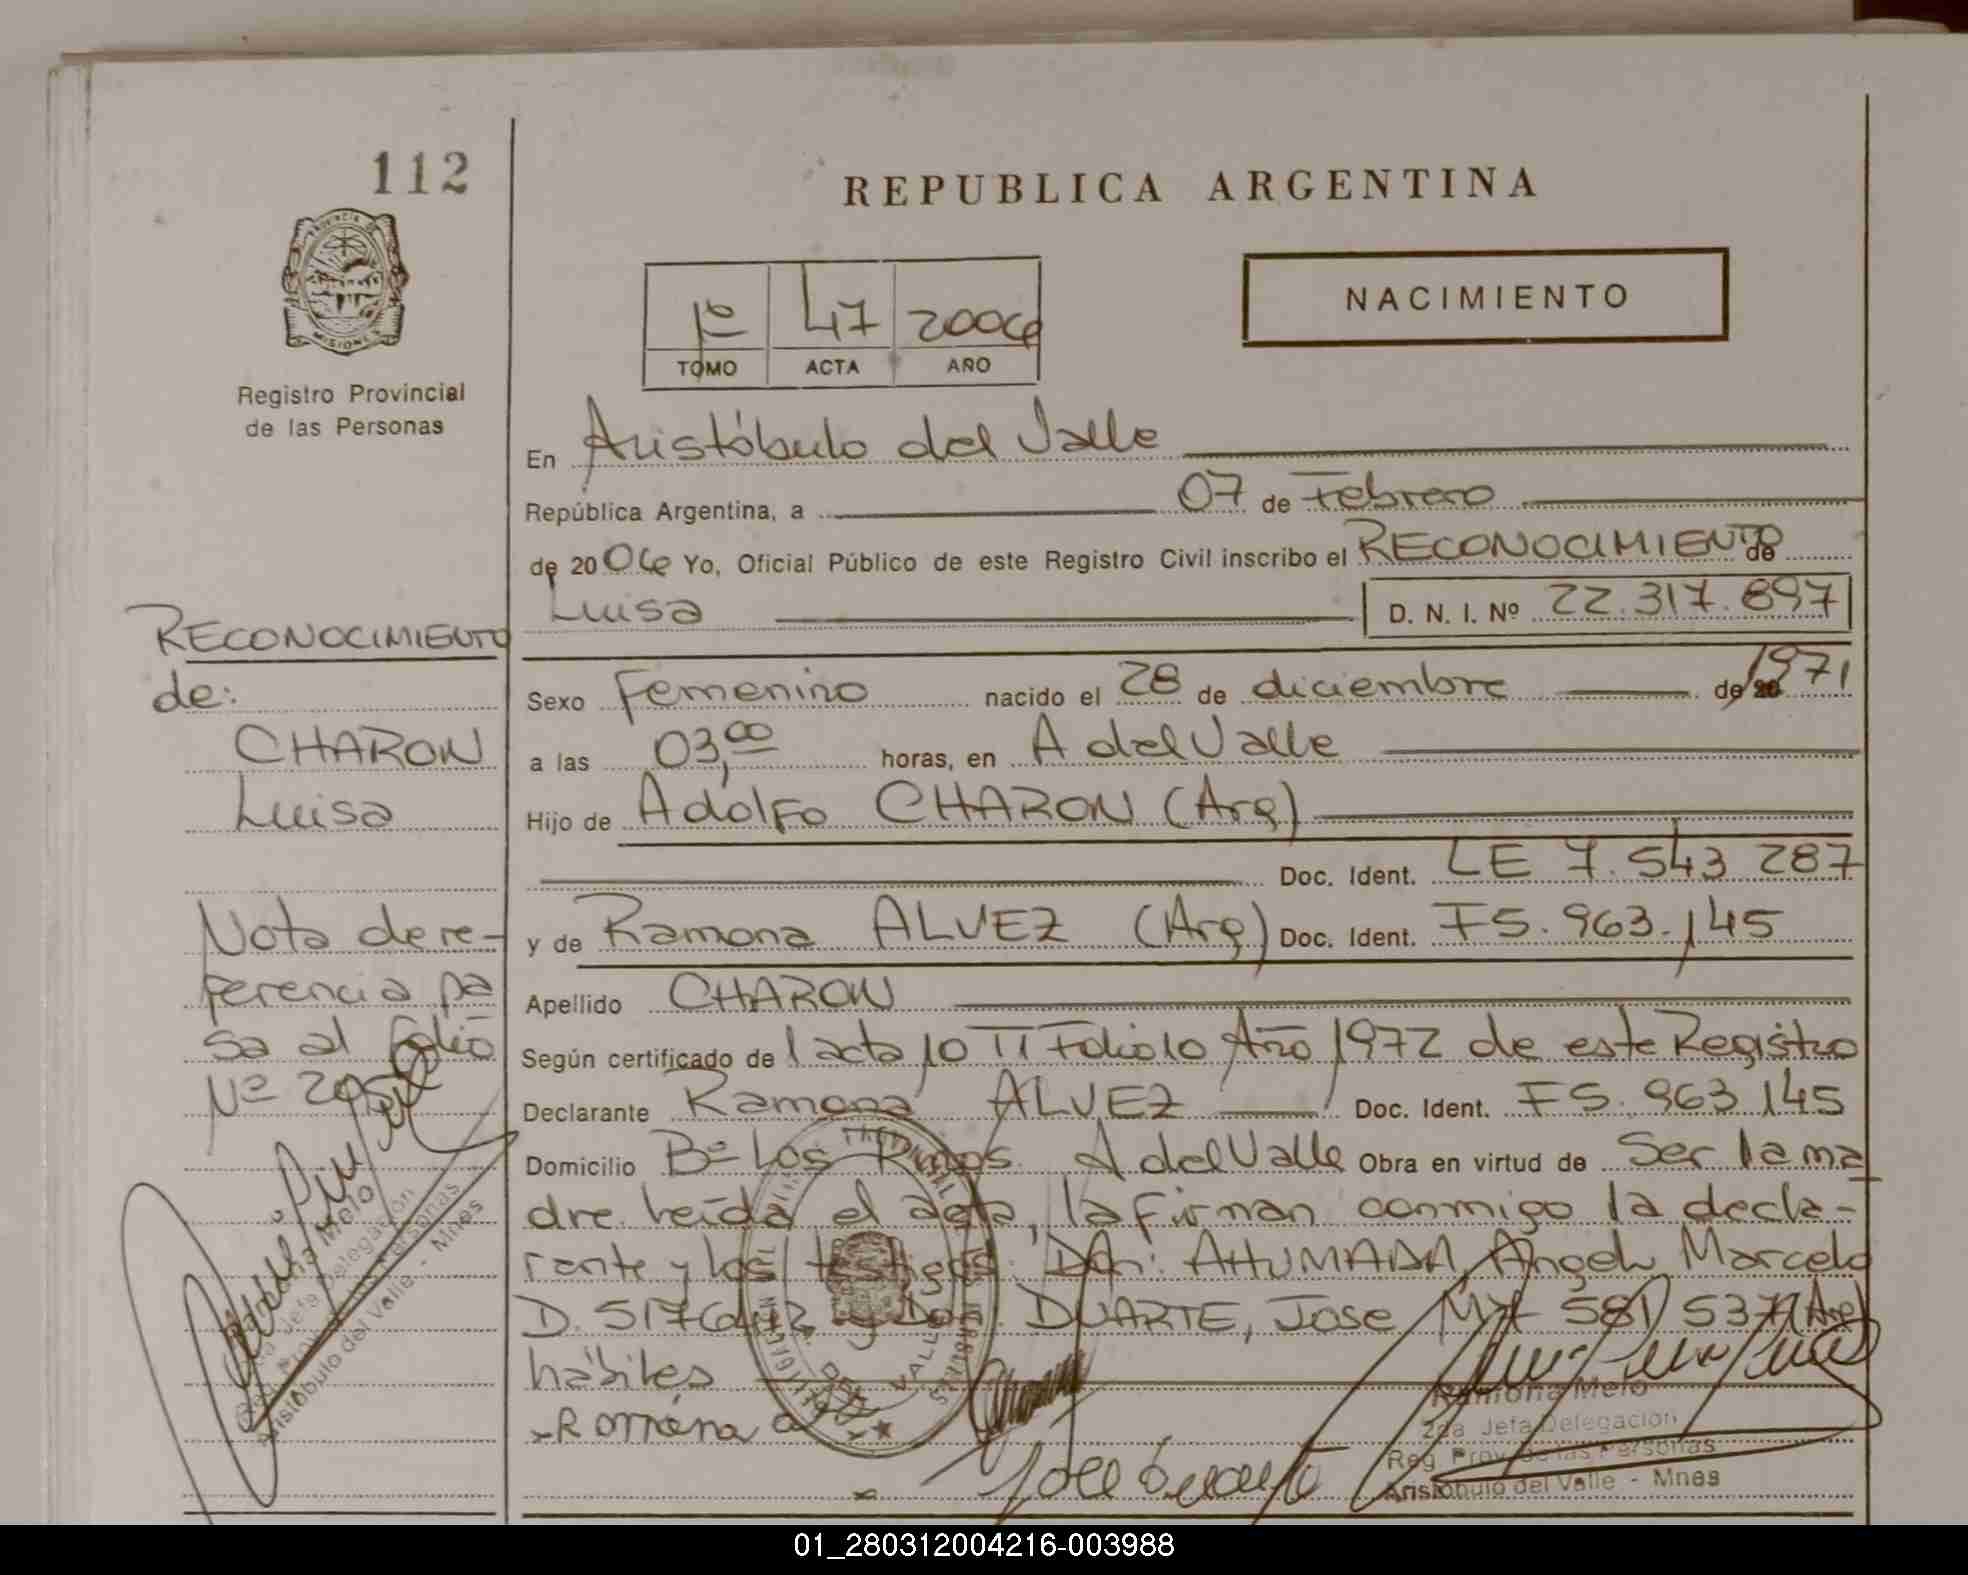 112
REPUBLICA ARGENTINA
NACIMIENTO
1º 47 2006
TOMO ACTA AÑO
PROVINCIA DE MISIONES
Registro Provincial
de las Personas
En Aristóbulo del Valle
República Argentina, a 07 de Febrero
de 2006 Yo, Oficial Público de este Registro Civil inscribo el RECONOCIMIENTO de
Luisa D. N. I. Nº 22.317.897
Sexo Femenino nacido el 28 de diciembre de 20 1971
a las 03,00 horas, en A del Valle
Hijo de Adolfo CHARON (Arg)
Doc. Ident. LE 7.543 287
y de Ramona ALVEZ (Arg) Doc. Ident. F5.963.145
Apellido CHARON
Según certificado de 1 acta 10 TI Folio 10 Año 1972 de este Registro
Declarante Ramona ALVEZ Doc. Ident. F5.963.145
Domicilio Bº Los A del Valle Obra en virtud de Ser la ma
dre. leída el acta, la firman conmigo la decla-
rante y los testigos: Don: AHUMADA, Angel Marcelo
D. y Don: DUARTE, Jose 581 537 (Arg)
hábiles
x Romona a
x Jose Duarte
Ramona Melo
2da Jefa Delegación
Reg Prov de las Personas
Aristóbulo del Valle - Mnes
RECONOCIMIENTO
de:
CHARON
Luisa
Nota de re-
ferencia pa
sa al folio
Nº
Ramona Melo
2da Jefa Delegación
Reg Prov de las Personas
Aristóbulo del Valle - Mnes
01_280312004216-003988